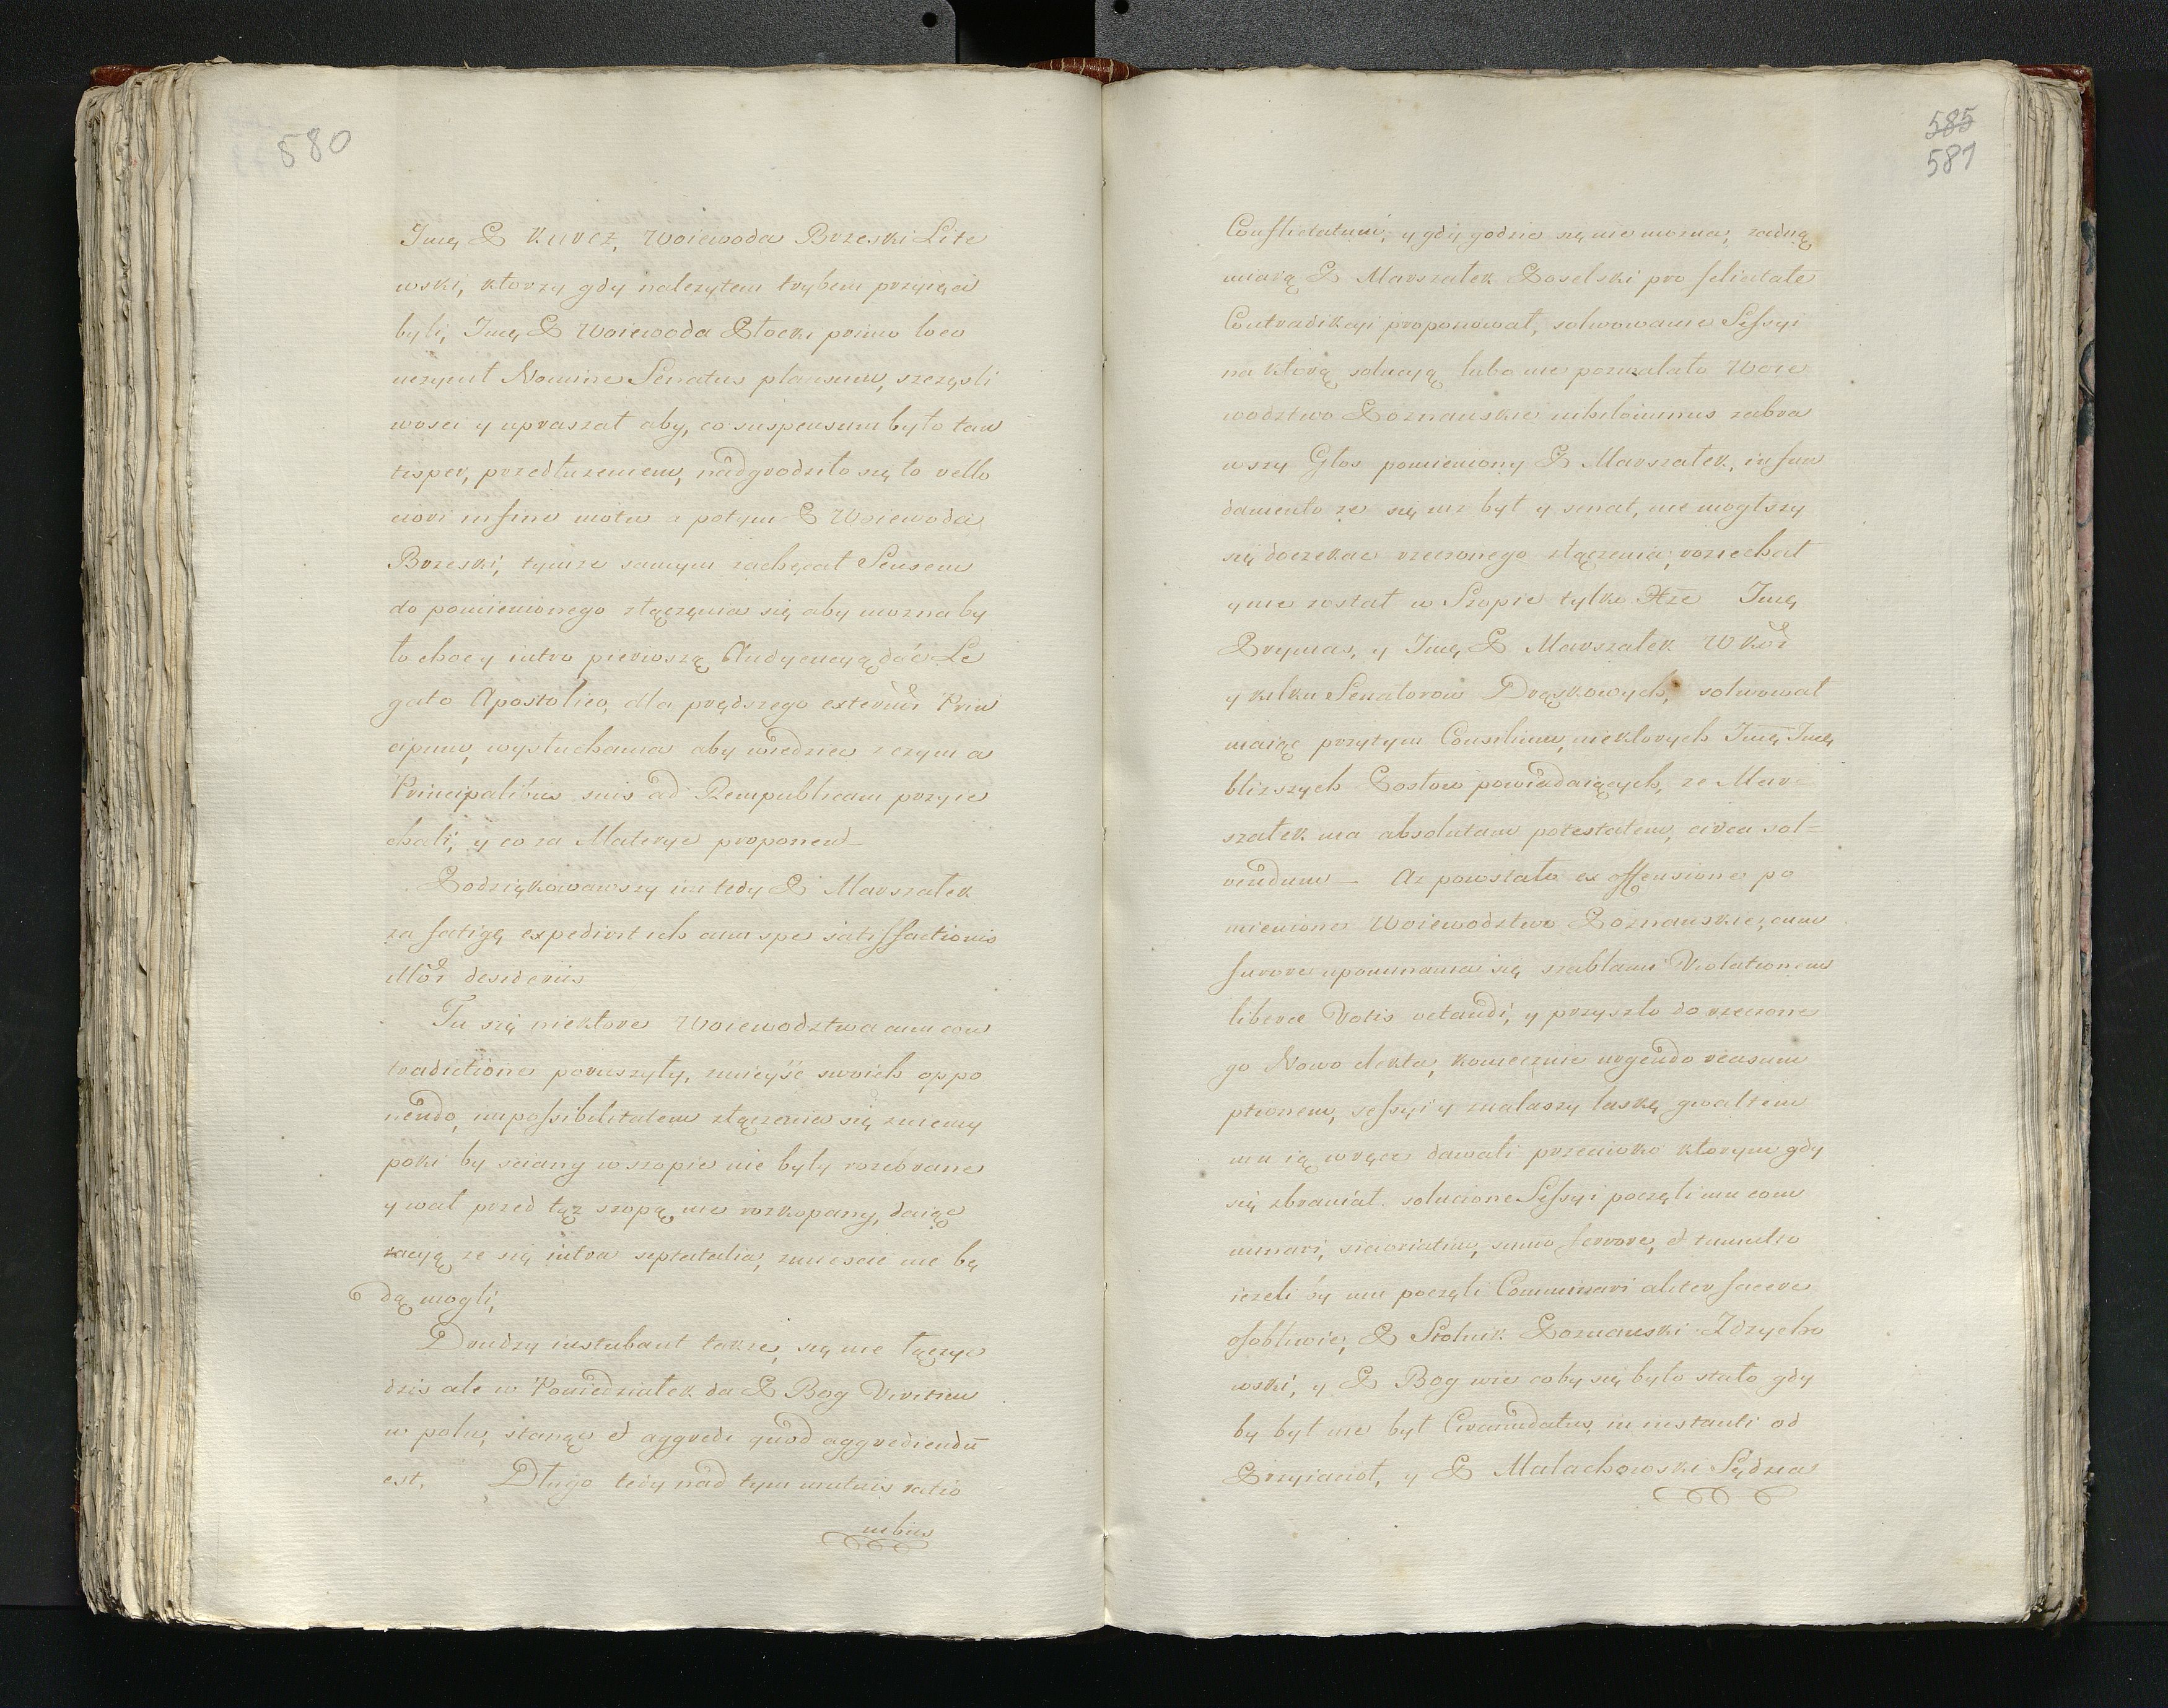 580
Jmę P Kurcz, Woiewoda Brzeski Lite
wski, ktorzy gdy nalezytem trybem przyięci
byli, Jmę P Woiewoda Płocki primo loco
uczynił Nomine Senatus plausum, szczęśli
wosci y upraszał aby, co suspensum było tan
tisper, przedłuzeniem, nadgrodziło się to vello
ciori in fine motu a potym P Woiewoda
Brzeski, tymze samym zachęcał Sensem
do pomienionego złączęnia się aby mozna by
to chocy intro pierwszą Audyencyą dać Le
gato Apostolico, dla prędszego externor Prin
cipum, wysłuchania aby wiedziec z czym a
Principalibus suis ad Rempublicam przyie
chali, y co za Materye proponen
Podziękowawszy im tedy P Marszałek
za fatigę expedivit ich cum spe satisfactionis
illor desideriis
Tu się niektore Woiewodztwa cum con
tradictione poruszyły, zmieyść swoich oppo
nendo, impossibilitatem złączenia się zniemy
poki by sciany w szopie nie były rozebrane
y wał przed tąz szopą nie rozkopany, daiąc
racyą ze się intra septatalia, zmiescic nie bę
dą mogli,
Drudzy instabant takze, się nie łączyc
dzis ale w Poniedziałek da P Bog Viritim
w polu, stanąc et aggredi quod aggrediendū
est, Długo tedy nad tym mutuis ratio
nibus
585
581
Conflictatum, y gdy godzic się nie mozna, zadną
miarą P Marszałek Poselski pro felicitate
Contradikcyi proponował, solwowanie Sessyi
na ktorą solucyą lubo nie pozwalało Woie
wodztwo Poznanskie nihilominus zabra
wszy Głos pomieniony P Marszałek, in fun
damento ze się iuz był y senat, nie mogłszy
się doczekac rzeczonego złączenia, roziechał
y nie został w Szopie tylko Xże Jmę
Prymas, y Jmę P Marszałek W Kor
y kilku Senatorow Drązkowych, solwował
maiąc przytym Consilium, niektorych Jmę Jmę
blizszych Posłow powiadaiących, ze Mar=
szałek ma absolutam potestatem, circa sol=
vendum Az powstało ex offensione po
mienione Woiewodztwo Poznanskie, cum
furore upominania się szablami Violationem
libera Votis vetandi, y przyszło do rzeczone
go Nowo elekta, koniecznie urgendo reasum
ptionem, sessyi y znalazszy laskę gwałtem
mu ią wręce dawali przeciwko ktorym gdy
się zbraniał solucione Sessyi poczęli mu com
minari, siccariatim, sumo fervore, et tumultu
iezeli by mu poczęli Comminari aliter facere
osobliwie, P Stolnik Poznanski Zdzycho
wski, y P Bog wie coby się było stało gdy
by był nie był Circumdatus in instanti od
Przyiacioł, y P Małachowski Sędzia